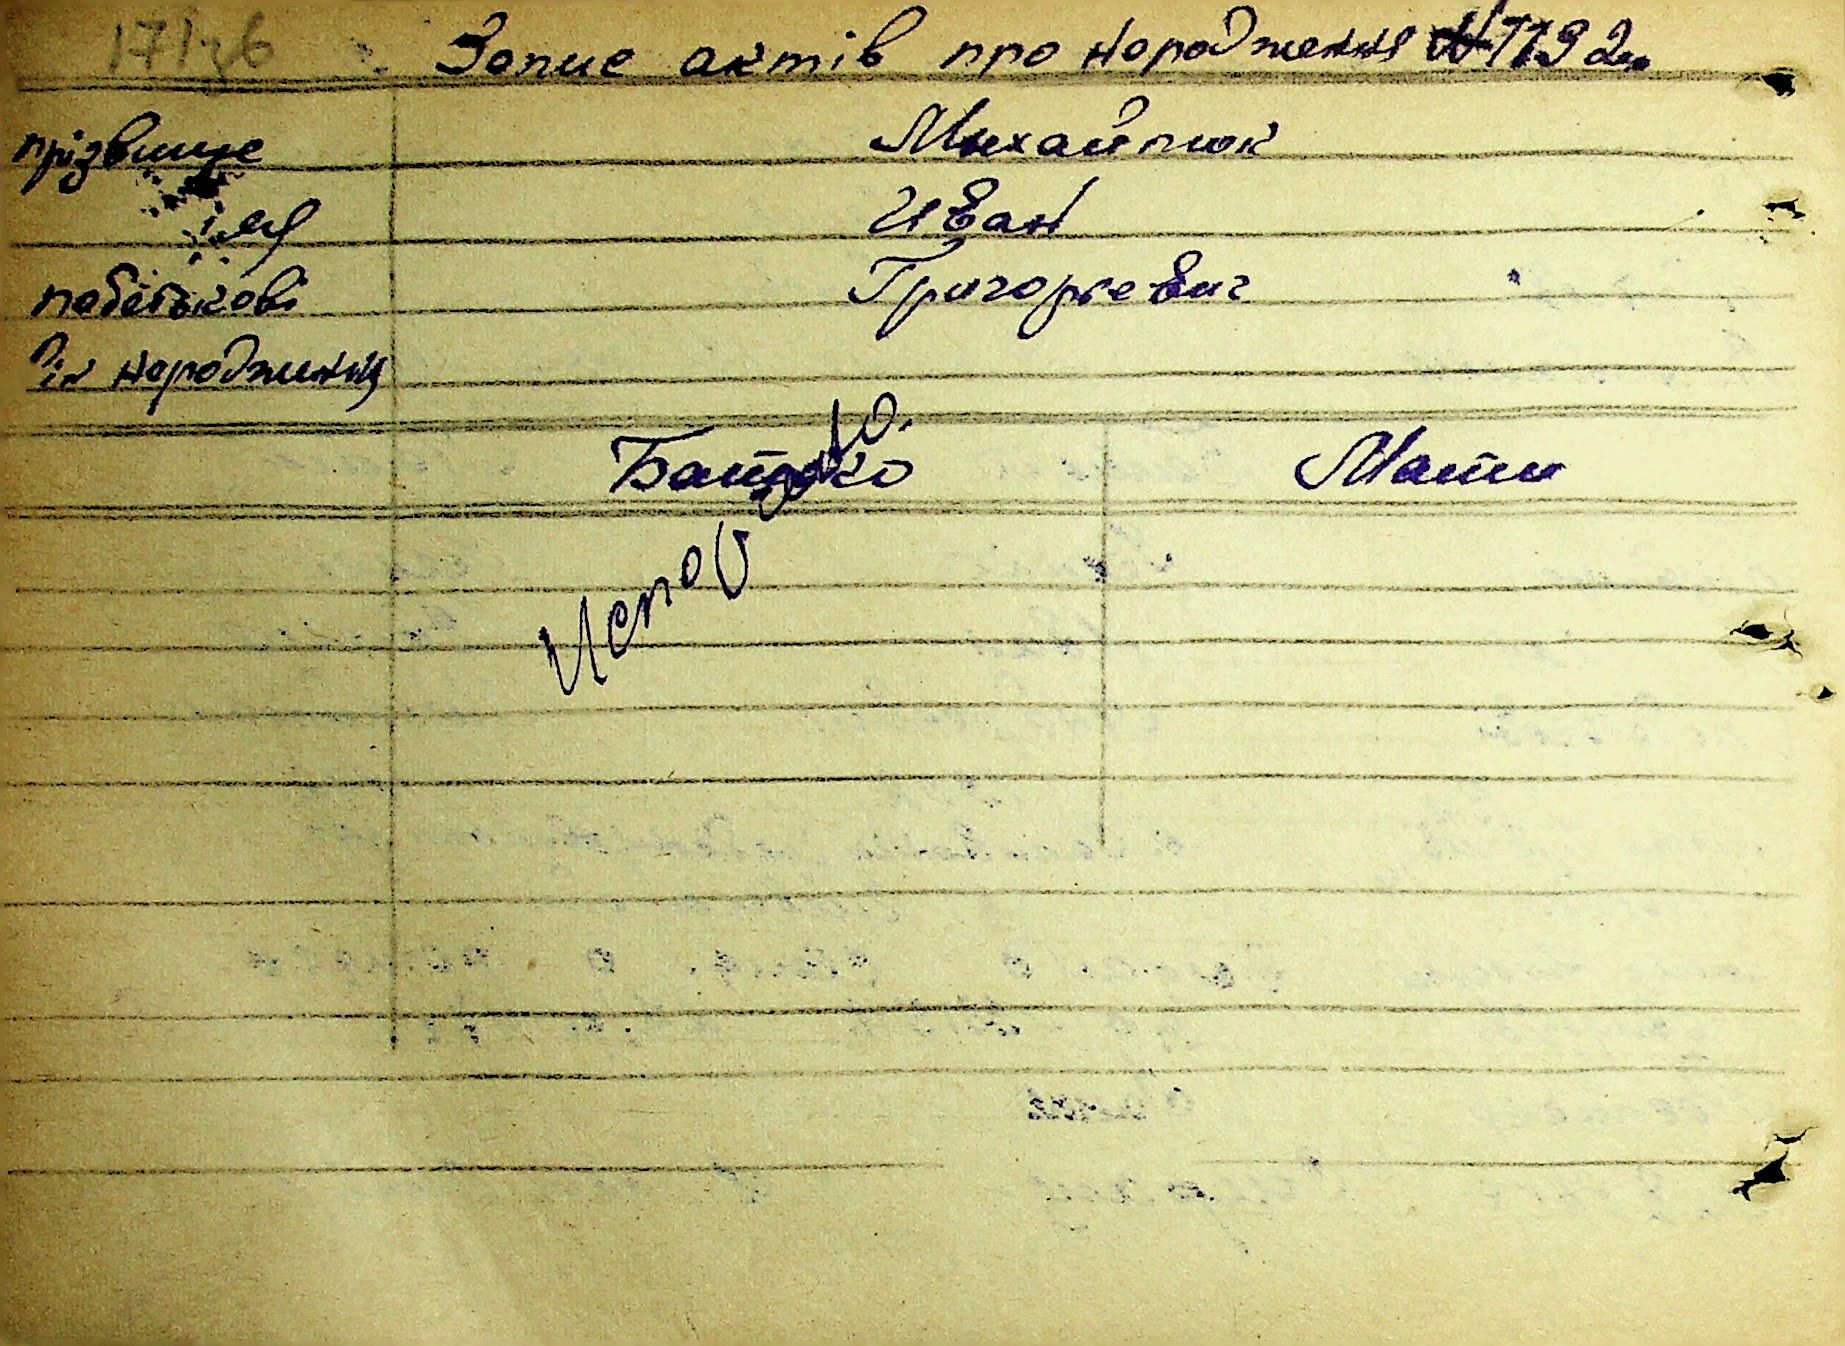 Запис актів про народження N 779 2м
прізвище Михайлюк
імя Иван
побатькові Григорьевич
рік народження
Батько Мати